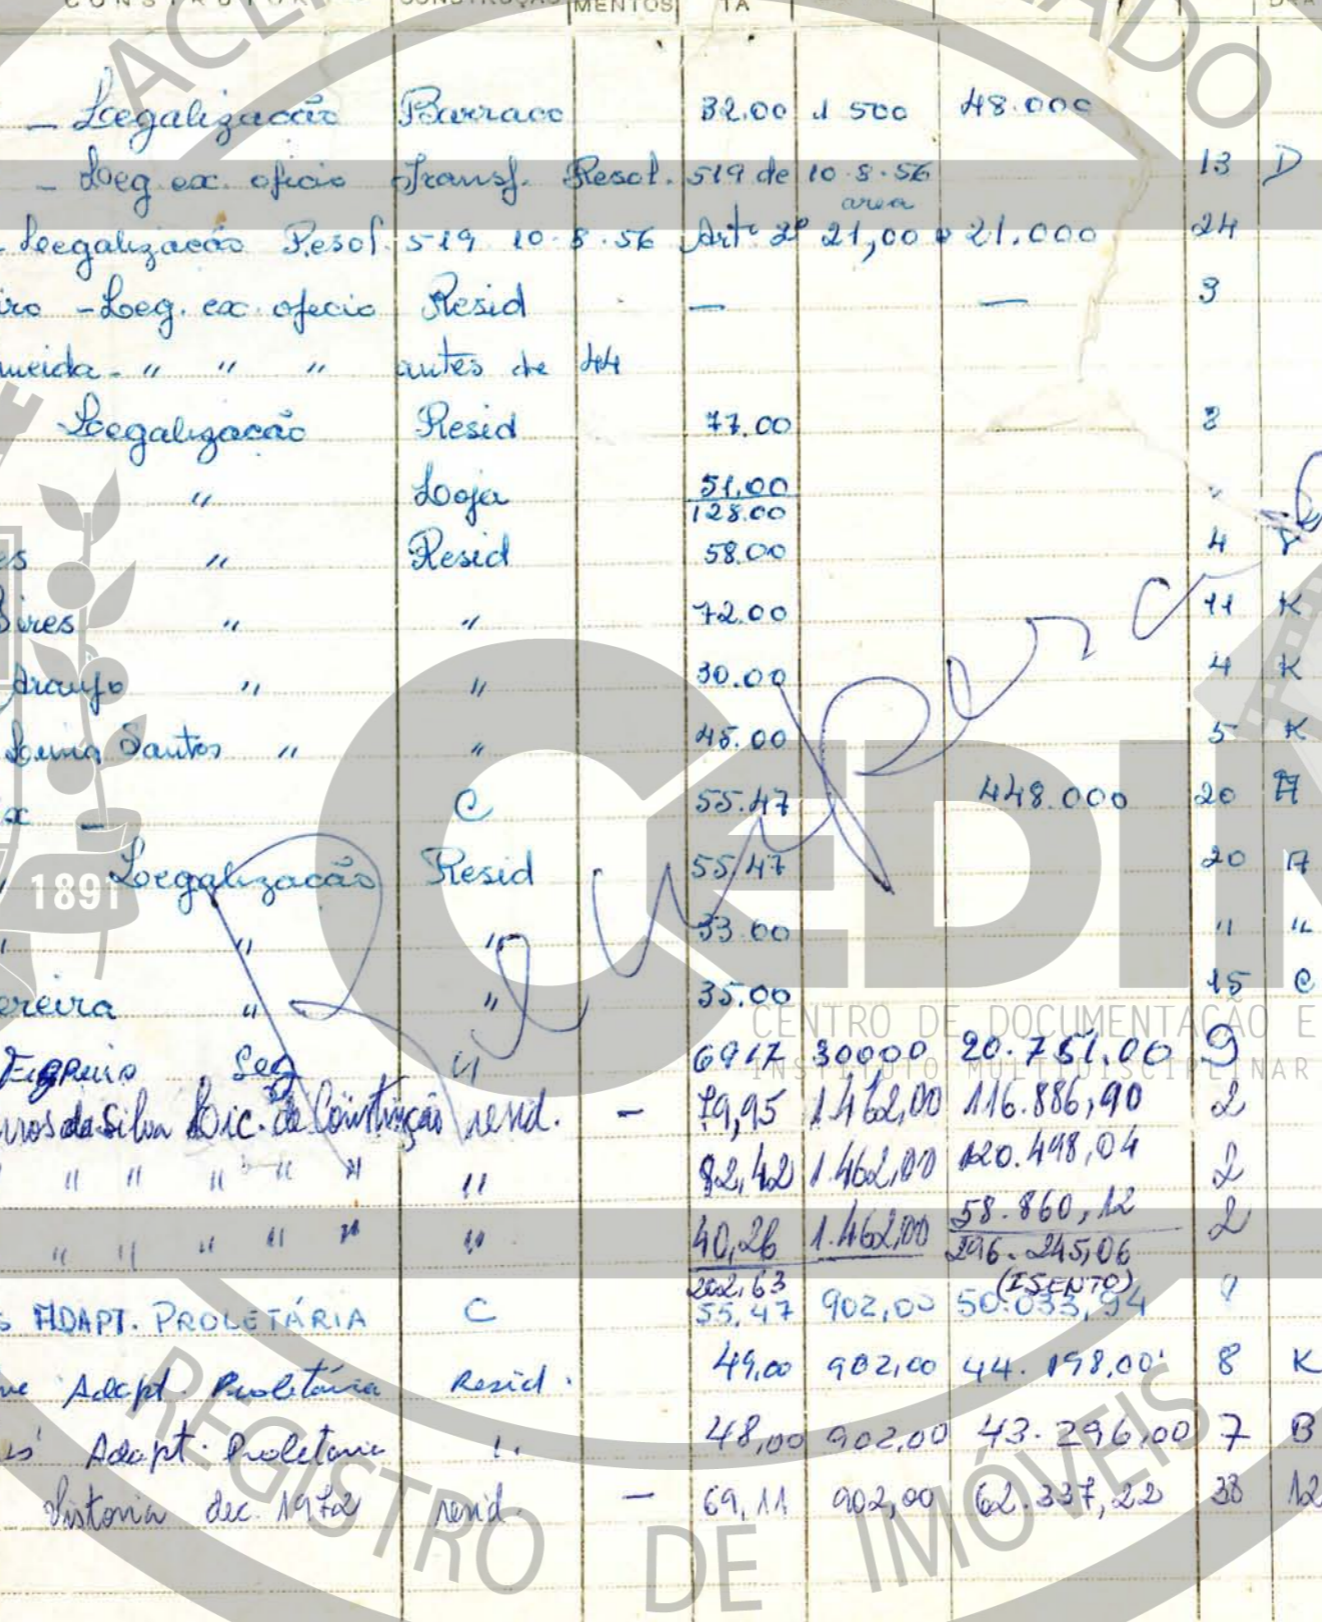 CONSTRUTOR CONSTRUÇÃO MENTOS TA
- Legalização Barraco 32.00 1 500 48.000
- Leg ex. oficio Transf. Resol. 519 de 10.8.56 13 D
area
Legalização Resol. 519 10-8-56 Artº 2º 21,00 21.000 24
iro - Leg. ex. oficio Resid — — 3
meida - " " " antes de 44
Legalização Resid 77.00 2
" Loja 51.00 "
128.00
es " Resid 58.00 4
Pires " " 72.00 11 K
Araujo " " 30.00 4 K
Santos " " 45.00 5 K
x - C 55.47 448.000 20 A
Legalização Resid 55,47 20 A
" " 33.60 " "
ereira " " 35.00 15 C
Leg " 6917 30000 20.751.00 9
rros da Silva Lic. de Construção resid. - 79,95 1.462,00 116.886,90 2
" " " " " " 82,42 1.462,00 120.498,04 2
" " " " " " 40,26 1.462,00 58.860,12 2
202,63 296.245,06
(ISENTO)
s ADAPT. PROLETÁRIA C 55.47 902,00 50.033,94
ve Adapt. Proletária Resid. 49,00 902,00 44.198,00 8 K
Adapt. Proletaria " 48,00 902,00 43.296,00 7 B
Vistoria dec. 1972 resid. - 69,11 902,00 62.337,22 38 12
Recupera
ADO
1891
CEDI
CENTRO DE DOCUMENTAÇÃO E
INSTITUTO MULTIDISCIPLINAR
REGISTRO DE IMÓVEIS